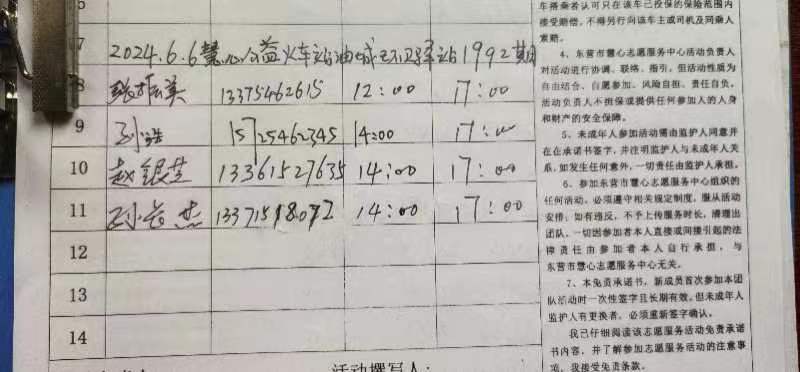 7 2024.6.6慧心公益火车站油城环卫驿站1992期
8 张振英 13375462615 12:00 17:00
9 孙洪 15725462345 14:00 17:00
10 赵银芝 13361527635 14:00 17:00
11 孙长杰 14:00 17:00
12
13
14
活动撰写人:
车搭乘者认可只在该车已投保的保险范围内
接受赔偿,不得另行向该车主或司机及同乘人
索赔。
4、东营市慧心志愿服务中心活动负责人
对活动进行协调、联络、指引,但活动性质为
自由结合、自愿参加、风险自担、责任自负,
活动负责人不担保或提供任何参加人的人身
和财产的安全保障。
5、未成年人参加活动需由监护人同意并
在在承诺书签字,并注明监护人与未成年人关
系,如发生任何意外,一切责任由监护人承担。
6、参加东营市慧心志愿服务中心组织的
任何活动,必须遵守相关规定制度,服从活动
安排,如有违反,不予上传服务时长,清理出
团队,一切因参加者本人直接或间接引起的法
律责任由参加者本人自行承担,与
东营市慧心志愿服务中心无关。
7、本免责承诺书,新成员首次参加本团
队活动时一次性签字且长期有效,但未成年人
监护人有更换者,必须重新签字确认。
我已仔细阅读该志愿服务活动免责承诺
书内容,并了解参加志愿服务活动的注意事
项,我接受免责条款。